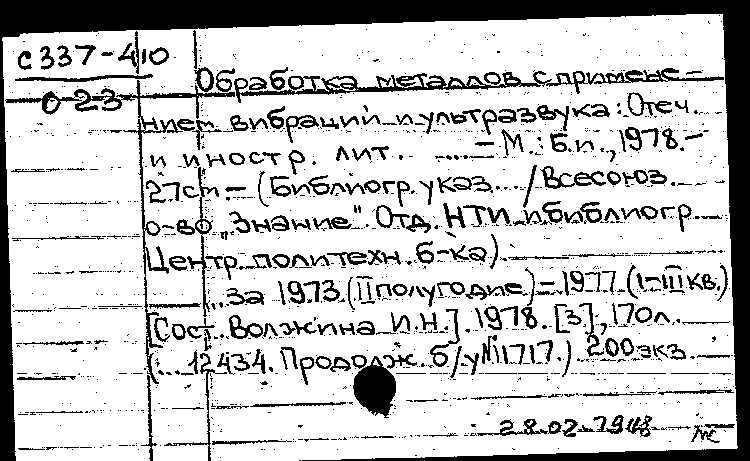 с337-410
0-23
Обработка металлов с примене-
нием вибраций и ультразвука: Отеч.
и иностр. лит. ....- М.: Б.и., 1978.-
27см.- (Библиогр. указ... /Всесоюз.
о-во „Знание". Отд. НТИ и библиогр.
Центр. политехн. б-ка).
...за 1973 (II полугодие) - 1977 (I-III кв.)
[Сост. Волжина И.Н.]. 1978. [3], 170л.
(... 12434. Продолж. б/у №1717.) 200экз.
28.02.79